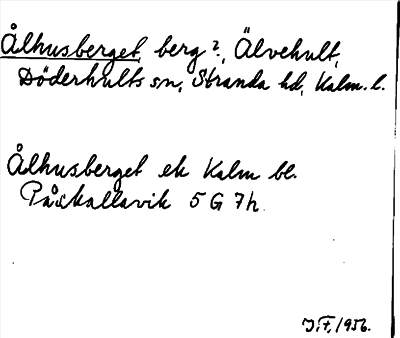 Ålhusberget, berg?, Älvehult,
Döderhults sn, Stranda hd, Kalm. l.
Ålhusberget ek Kalm bl.
Påskallavik 5 G 7h
J.F, 1956.